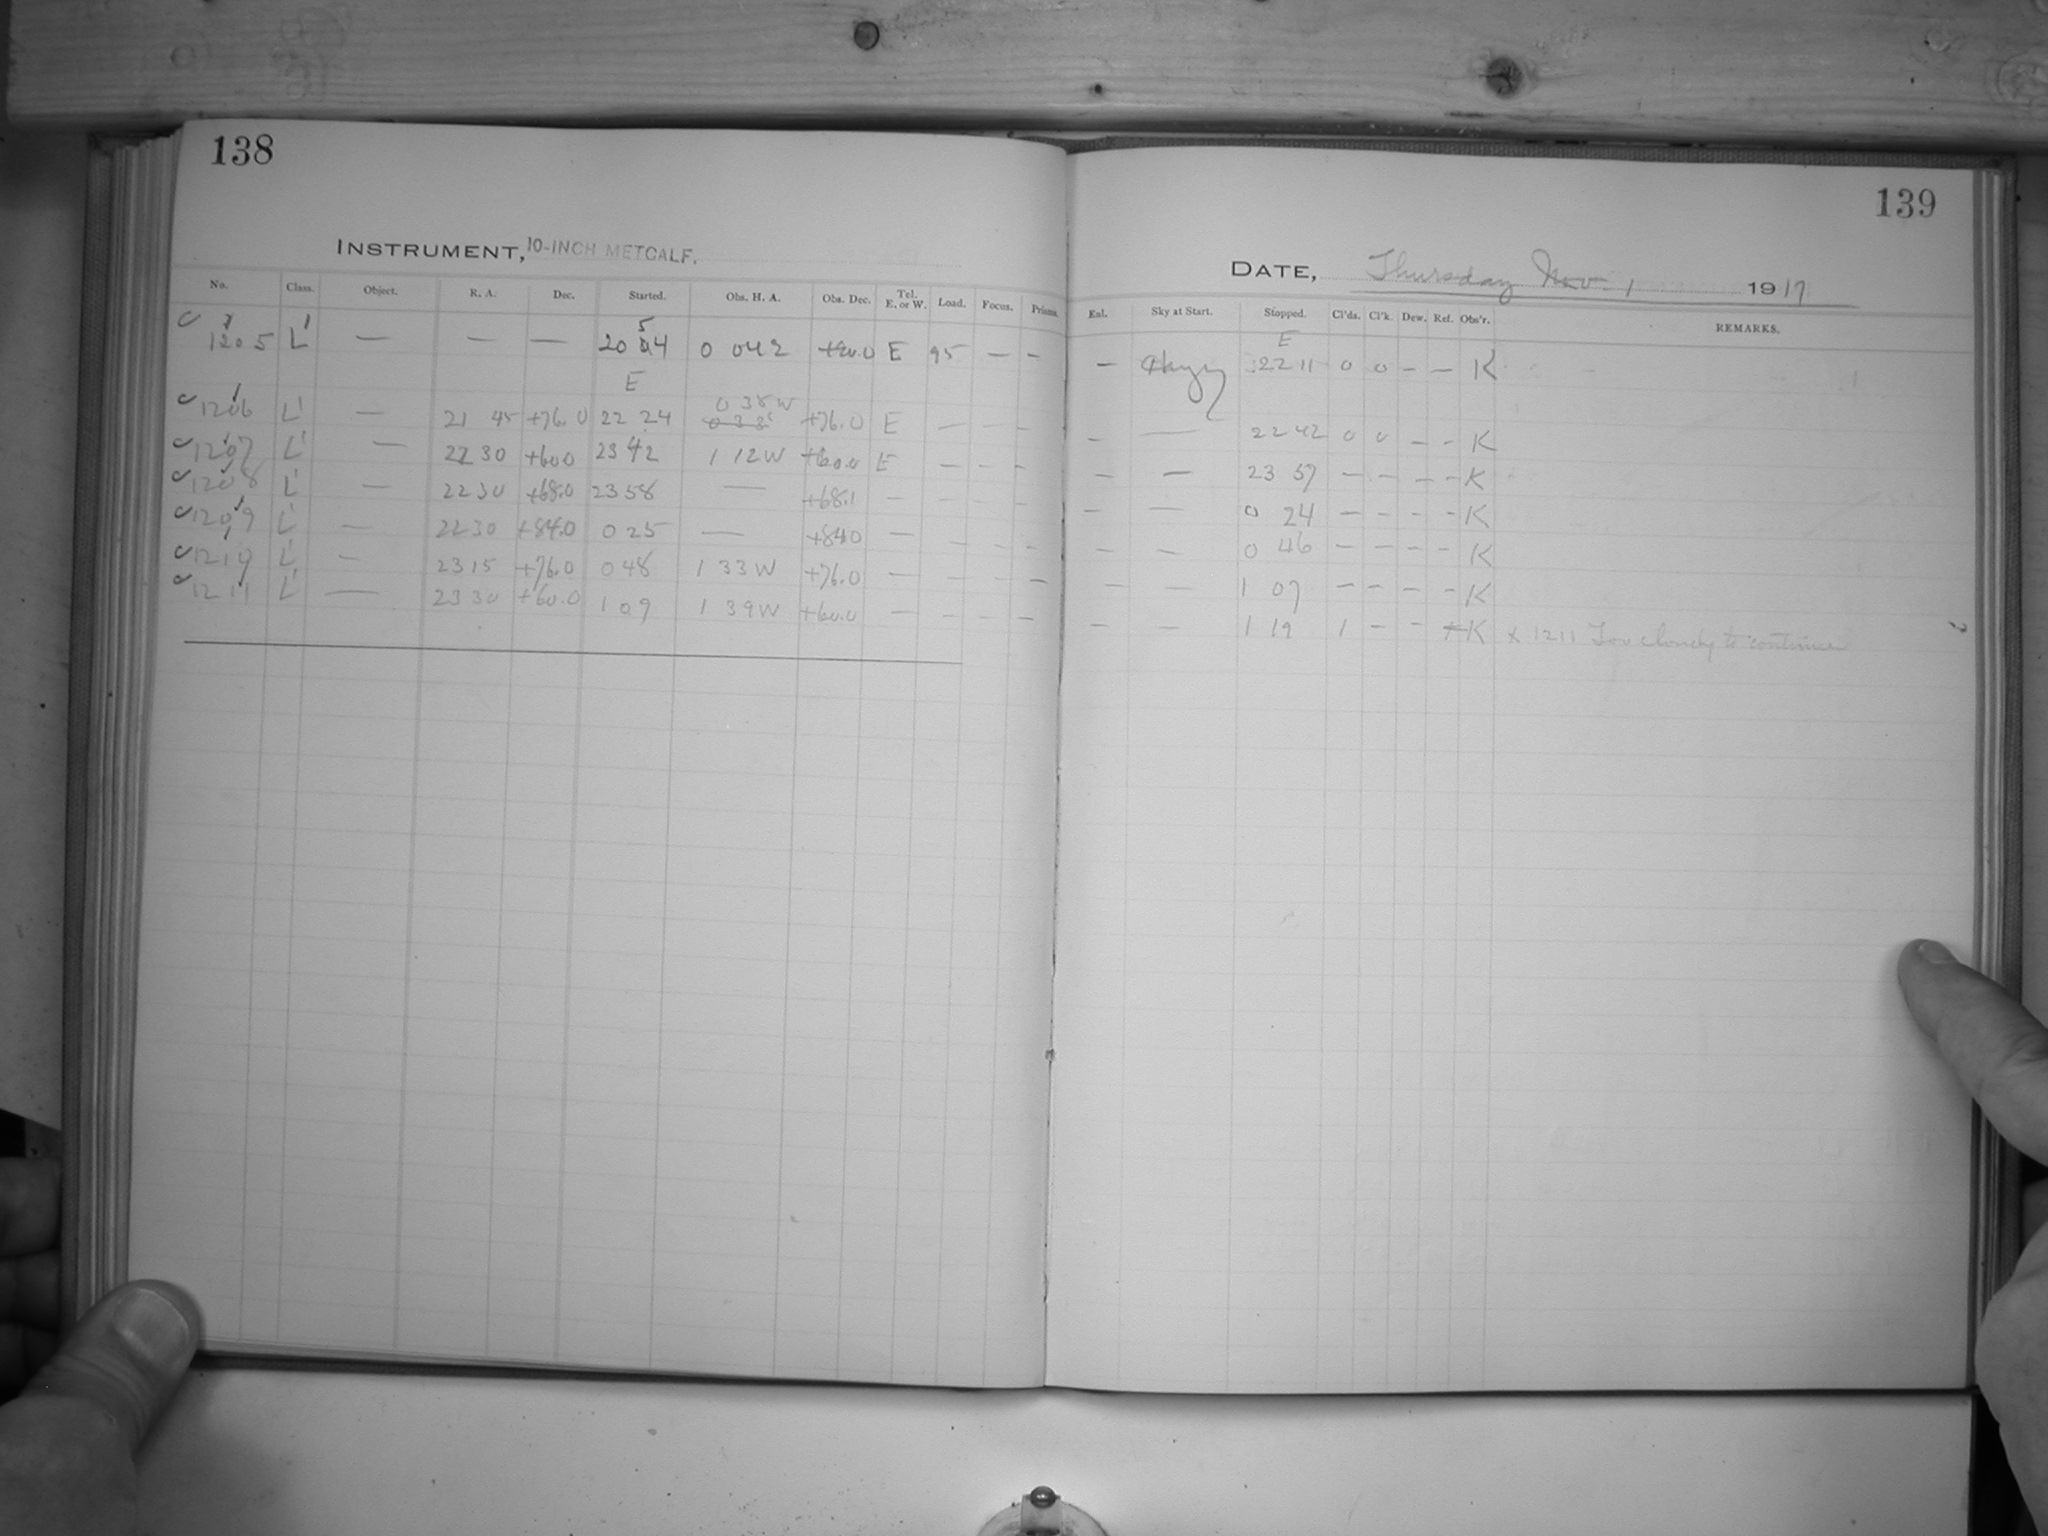 138
INSTRUMENT, 10-INCH METCALF.
No. Class. Object. R. A. Dec. Started. Obs. H. A. Obs. Dec. Tel. E. or W. Load. Focus. Prisms.
1205 L' — — — 20 54 0 042 +20.0 E 95 — —
E
0 38 W
1206 L' — 21 45 +76.0 22 24 +76.0 E — — —
1207 L' — 22 30 +60.0 23 42 1 12 W +60.0 E — — —
1208 L' — 22 30 +68.0 23 58 — +68.1 — — — —
1209 L' — 22 30 +84.0 0 25 — +84.0 — — — —
1210 L' — 23 15 +76.0 0 48 1 33 W +76.0 — — — —
1211 L' — 23 30 +60.0 1 09 1 39 W +60.0 — — — —
139
DATE, Thursday Nov. 1 1917
Enl. Sky at Start. Stopped. Cl'ds. Cl'k. Dew. Ref. Obs'r. REMARKS.
E
— Hazy 22 11 0 0 — — K
— — 22 42 0 0 — — K
— — 23 57 — — — — K
— — 0 24 — — — — K
— — 0 46 — — — — K
— — 1 07 — — — — K
— — 1 19 1 — — K x 1211 Too cloudy to continue